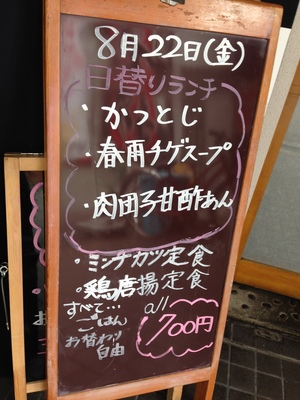 8月22日(金)
日替りランチ
・かつとじ
・春雨チゲスープ
・肉団子甘酢あん
・ミンチカツ定食
・鶏唐揚定食
すべて… all
ごはん 700円
お替わり
自由